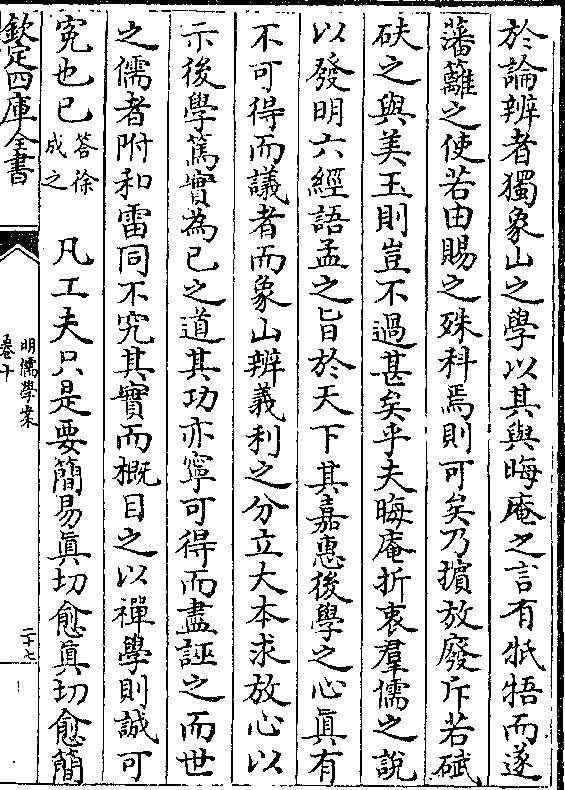 於論辨者獨象山之學以其與晦庵之言有牴牾而遂
藩籬之使若由賜之殊科焉則可矣乃擯放廢斥若碔
砆之與美玉則豈不過甚矣乎夫晦庵折衷羣儒之說
以發明六經語孟之旨於天下其嘉惠後學之心真有
不可得而議者而象山辨義利之分立大本求放心以
示後學篤實為已之道其功亦寧可得而盡誣之而世
之儒者附和雷同不究其實而概目之以禪學則誠可
寃也已答徐成之　凡工夫只是要簡易真切愈真切愈簡
欽定四庫全書
明儒學案
卷十
二十七